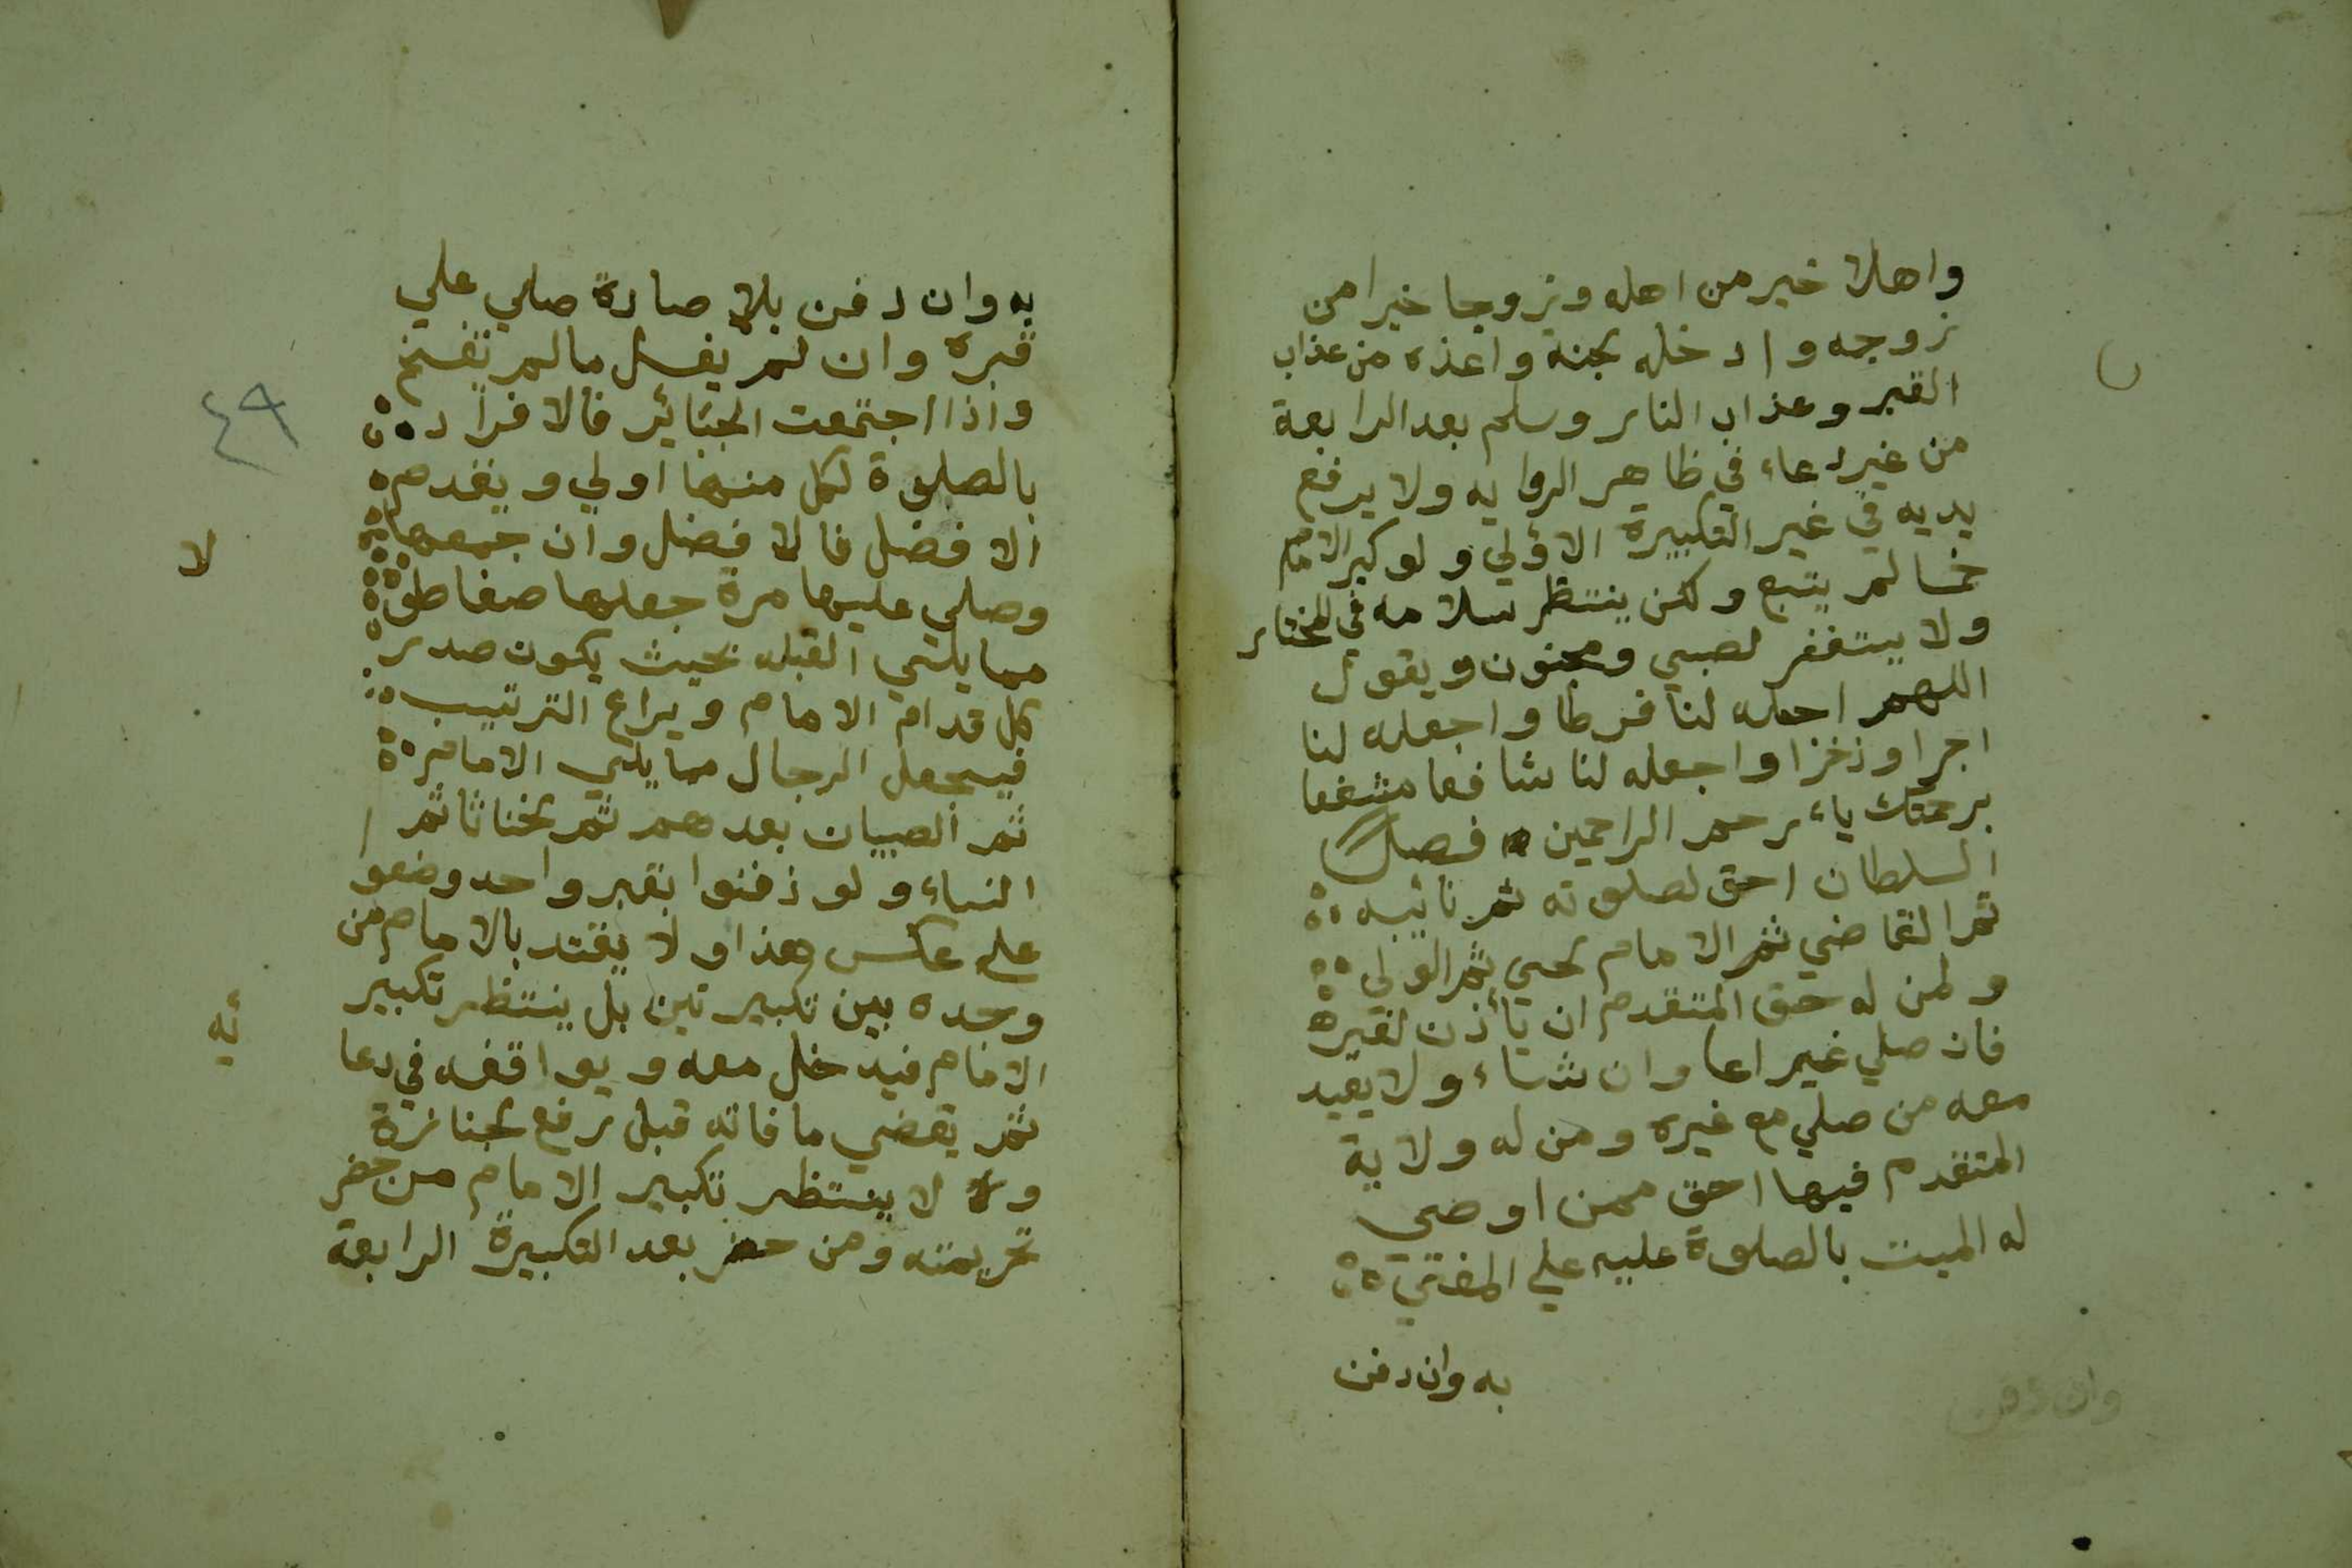 واهلا خير من اهله وزوجا خيرا من
زوجه وادخله لجنة واعذه من عذاب
القبر وعذاب النار وسلم بعد الرابعة
من غير دعاء في ظاهر الروايه ولا يرفع
يديه في غير التكبيرة الاؤلي ولو كبر الامام
خمسا لمر يتبع ولكن ينتظر سلامه في المختار
ولا يستغفر لصبي ومجنون ويقول
اللهمر اجعله لنا فرطا واجعله لنا
اجرا وذخرا واجعله لنا شافعا مشفعا
برحمتك ياءرحمر الراحمين فصل
السلطان احق لصلوته ثمر نائبه
ثمر القاضي ثمر الامام لحي ثمر الولي
ولمن له حق المتقدم ان يأذن لغيره
فان صلي غيره اعا وان شاء ولا يعيد
معه من صلي مع غيره ومن له ولاية
المتقدم فيها احق ممن اوصي
له الميت بالصلوة عليه علي المفتي
به وان دفن
وان دفن
به وان دفن بلا صلاة صلي علي
قبره وان لمر يغسل مالمر يتفسخ
واذا اجتمعت الجنائز فالافراد
بالصلوة لكل منها اولي ويقدم
الافضل فالافضل وان جمعها
وصلي عليها مرة جعلها صفا طو
لا
مما يلي القبله بحيث يكون صدر
كل قدام الامام ويراع الترتيب
فيجعل الرجال مما يلي الامام
ثمر الصبيان بعدهمر ثمر لخناثا ثمر
النساء ولو ذفنوا بقبر واحد وضعو
علي عكس هذا ولا يقتد بالامام من
وجده بين تكبيرتين بل ينتظر تكبير
الامام فيدخل معه ويوافقه في دعا
ئه
ثمر يقضي ما فاته قبل رفع لجنازة
ولا ينتظر تكبير الامام من حضر
تحريمته ومن حضر بعد التكبيرة الرابعة
٤٩